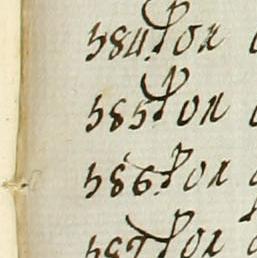 584 Por
585 Por
586 Por
587 Por